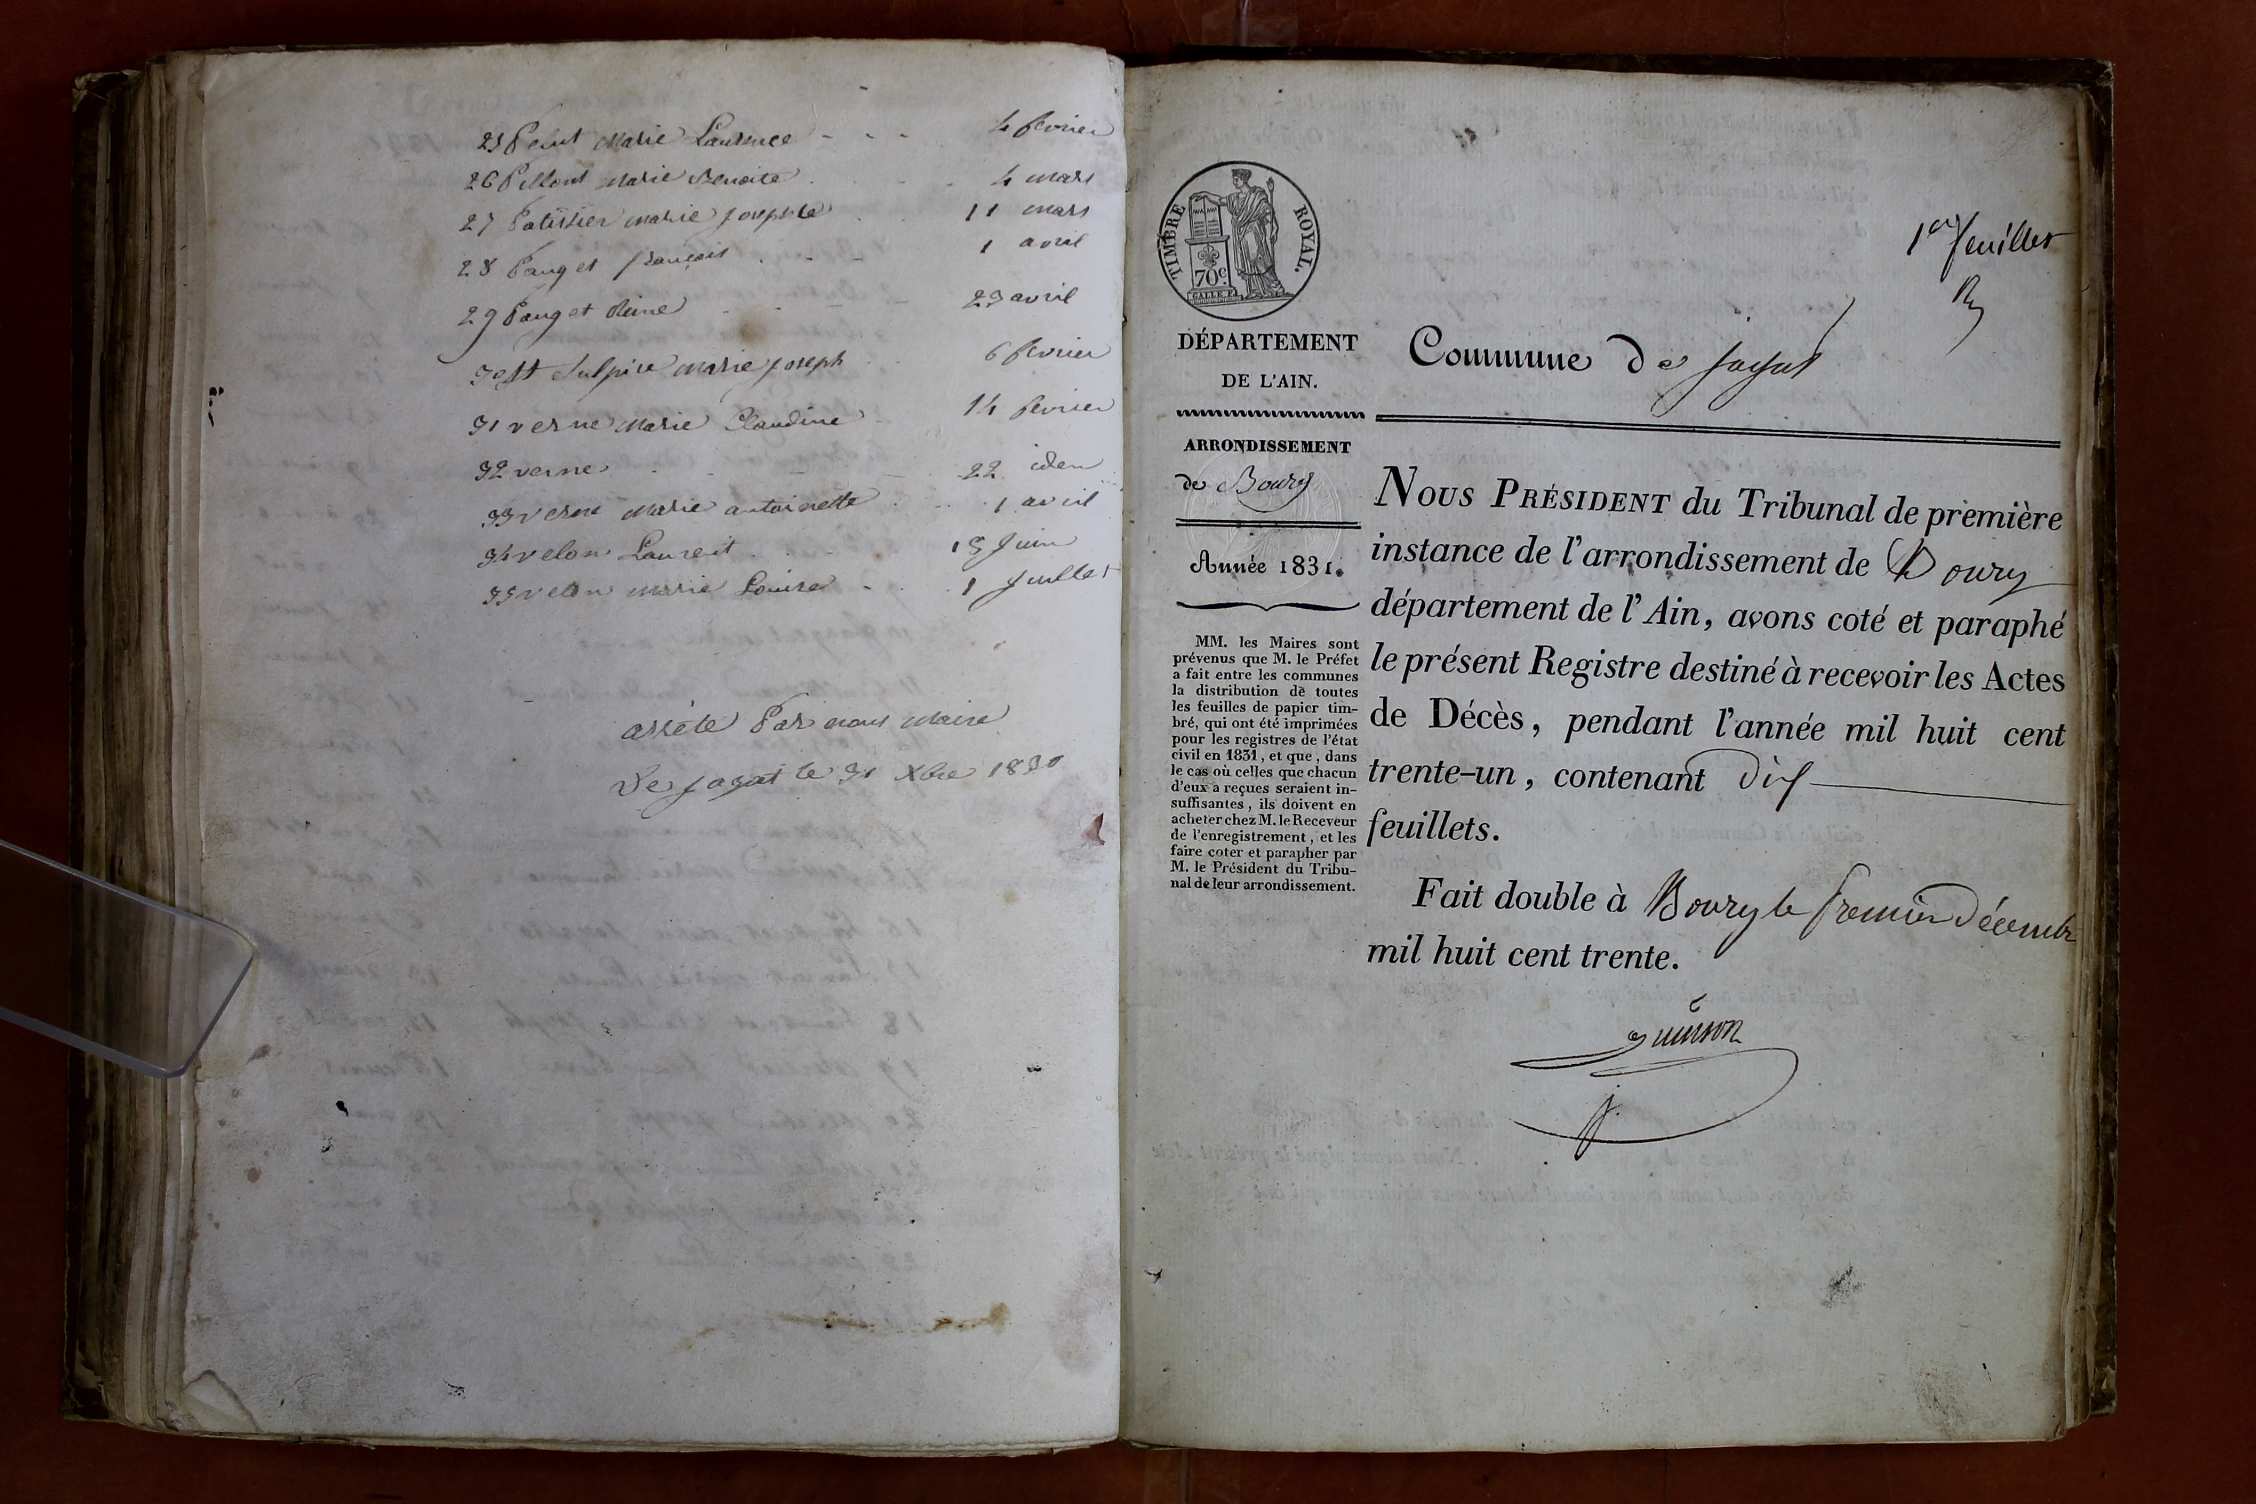 25 Petit Marie Laurence - - - 4 fevrier
26 Pillont Marie Benoite . . . 4 mars
27 Patissier marie josephte . . 11 mars
28 Pauget françois . - - 1 avril
29 Pauget Reine - - - - 29 avril
30 St Sulpice Marie joseph . . 6 fevrier
31 verne Marie Claudine - 14 fevrier
32 verne . - - - 22 idem
33 verne Marie antoinette . . . 1 avril
34 velon Laurent . . . 15 Juin
35 velon Marie Louise - . . 1 Juillet
arrêté Par nous Maire
De jayat le 31 Xbre 1830
1er feuillet
TIMBRE ROYAL.
70c.
DÉPARTEMENT
DE L'AIN.
Commune de jayat
ARRONDISSEMENT
de Bourg
Année 1831.
MM. les Maires sont
prévenus que M. le Préfet
a fait entre les communes
la distribution de toutes
les feuilles de papier tim-
bré, qui ont été imprimées
pour les registres de l'état
civil en 1831, et que, dans
le cas où celles que chacun
d'eux a reçues seraient in-
suffisantes, ils doivent en
acheter chez M. le Receveur
de l'enregistrement, et les
faire coter et parapher par
M. le Président du Tribu-
nal de leur arrondissement.
NOUS PRÉSIDENT du Tribunal de première
instance de l'arrondissement de Bourg
département de l'Ain, avons coté et paraphé
le présent Registre destiné à recevoir les Actes
de Décès, pendant l'année mil huit cent
trente-un, contenant dix
feuillets.
Fait double à Bourg le premier Décembre
mil huit cent trente.